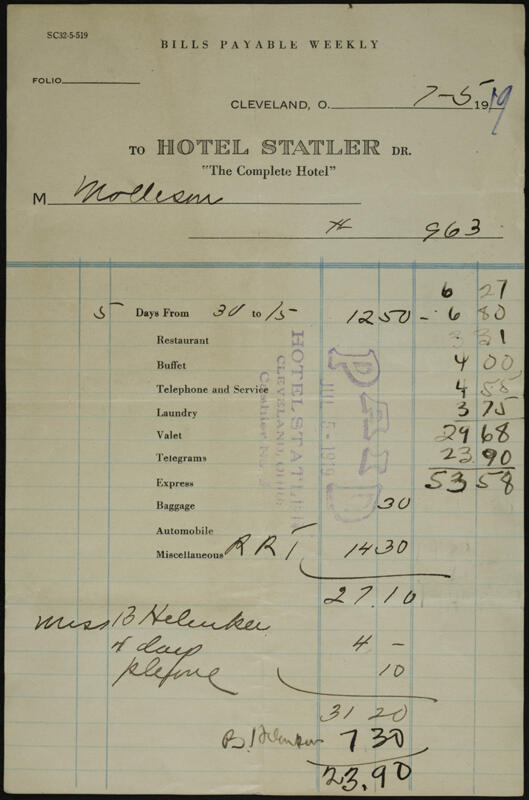 SC32-5-519
BILLS PAYABLE WEEKLY
FOLIO
CLEVELAND, O. 7-5 1919
TO HOTEL STATLER DR.
"The Complete Hotel"
M Mollison
# 963
6 27
5 Days From 30 to 1/5 12 50 - 6 80
Restaurant 3 31
Buffet 4 00
Telephone and Service 4 55
Laundry 3 75
Valet 29 68
Telegrams 23.90
Express 53 58
Baggage 30
Automobile
Miscellaneous R R T 14 30
HOTEL STATLER
CLEVELAND, OHIO
Cashier No.
PAID
JUL 5-1919
27.10
Miss B Helenker
4 -
plefone 10
31 20
B. Helenker 7 30
23.90